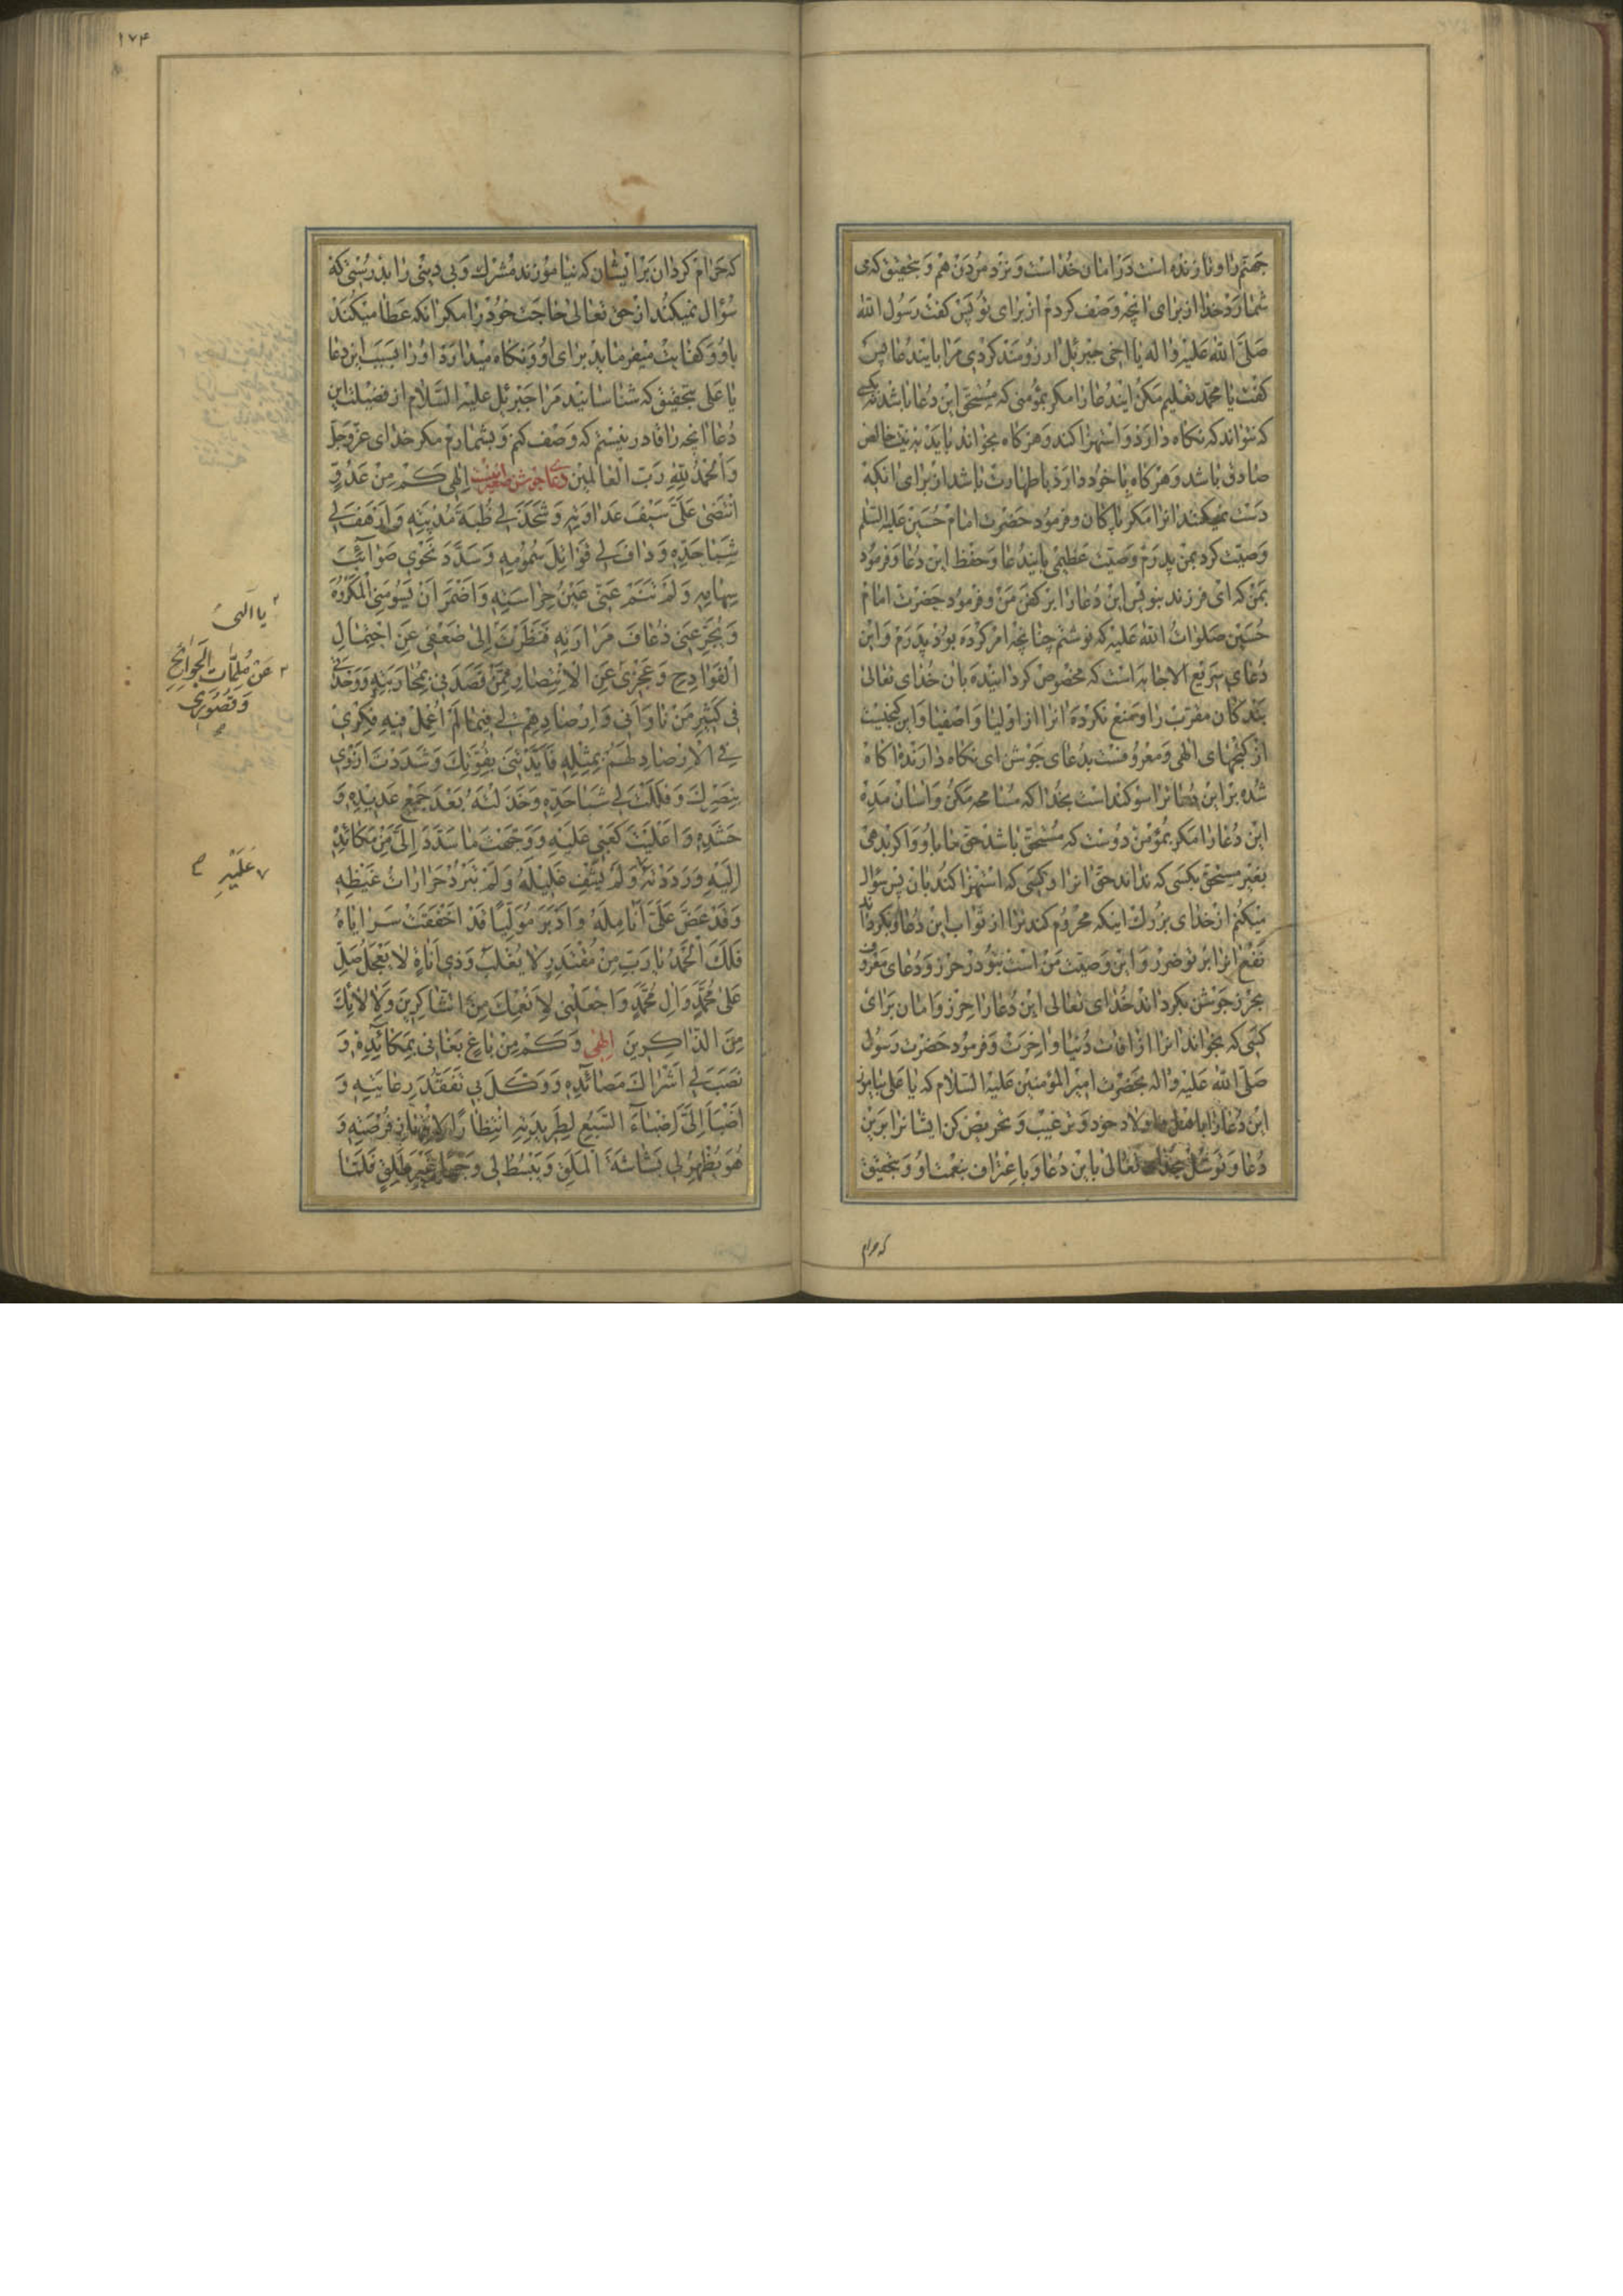 جهنم را و تا زنده است در امان خداست و نزد مردن هم و بتحقیق که می
شمارد خدا از برای انچه وصف کردم از برای تو پس کفت رسول الله
صلی الله علیه واله یا اخی جبرئیل ارزومند کردی مرا بایندعا پس
کفت یا محمد تعلیم مکن ایندعا را مکر بمؤمنی که مستحق این دعا باشد نه بکسی
که نتواند که نکاه دارد و استهزا کند و هر کاه بخواند باید به نیت خالص
صادق باشد و هر کاه با خود دارد با طهارت باشد از برای انکه
دست نمیکنند انرا مکر پاکان و فرمود حضرت امام حسین علیه السلم
وصیت کرد بمن پدرم وصیت عظیمی بایندعا و حفظ این دعا و فرمود
بمن که ای فرزند بنویس این دعا را بر کفن من و فرمود حضرت امام
حسین صلوات الله علیه که نوشتم چنانچه امر کرده بود پدرم و این
دعای سریع الاجابه است که مخصوص کردانیده بان خدای تعالی
بندکان مقرب را و منع نکرده انرا از اولیا و اصفیا و این کنجیست
از کنجهای الهی و معروفست بدعای جوشن ای نکاه دارنده اکاه
شده برا این دعا ترا سوکنداست بخدا که مسامحه مکن و اسان مده
این دعا را مکر بمؤمن دوست که مستحق باشد حق خابا و و اکر بدهی
بغیر مستحق بکسی که نداند حق انرا و کسی که استهزا کند بان پس سؤال
میکنم از خدای بزرک اینکه محروم کند ترا از ثواب این دعا و بکرداند
نفع انرا بر تو ضرر و این وصیت من است بتو در حرز و دعای معروف
بحرز جوشن بکرداند خدای تعالی این دعا را حرز و امان برای
کسی که بخواند انرا از افات دنیا و اخرت و فرمود حضرت رسول
صلی الله علیه واله بحضرت امیرالمؤمنین علیه السلام که یا علی بیاموز
این دعا را باهل و اولاد خود و ترغیب و تحریص کن ایشانرا بر این
دعا و توسل بخدای تعالی باین دعا و باعتراف بنعمت او و بتحقیق
که حرام
۱۷۴
که حرام کردان برایشان که نیاموزند مشرک و بی دینی را بدرستی که
سؤال نمیکند از حق تعالی حاجت خود را مکر انکه عطا میکند
باو و کفایت میفرماید برای او و نکاه میدارد او را بسبب این دعا
یا علی بتحقیق که شناسانید مرا جبرئیل علیه السلام از فضیلت این
دعا انچه را قادر نیستم که وصف کنم و بشمارم مکر خدای عز و جل
و الحمد لله رب العالمین دعای جوشن صغیر اینست الهی کم من عدو
انتضی علی سیف عداوته و شحذ لی ظبة مدیته و ارهف لی
شبا حده و داف لی قواتل سمومه و سدد نحوی صوائب
سهامه و لم تنم عنی عین حراسته و اضمر ان یسومنی المکروه
و یجرعنی ذعاف مرارته فنظرت الی ضعفی عن احتمال
الفوادح و عجزی عن الانتصار ممن قصدنی بمحاربته و وحدتی
فی کثیر من ناوانی و ارصادهم لی فیما لم اعمل فیه فکری
فی الارصاد لهم بمثله فایدتنی بقوتک و شددت ازری
بنصرک و فللت لی شبا حده و خذلته بعد جمع عدیده و
حشده و اعلیت کعبی علیه و وجهت ما سدد الی من مکائده
الیه و رددته و لم یشف غلیله و لم تبرد حرارات غیظه
و قد عض علی انامله و ادبر مولیا قد اخفقت سرایاه
فلک الحمد یا رب من مقتدر لا یغلب و ذی اناة لا یعجل صل
علی محمد وال محمد و اجعلنی لانعمک من الشاکرین و لالائک
من الذاکرین الهی و کم من باغ بغانی بمکائده و
نصب لی اشراک مصائده و وکل بی تفقد رعایته و
اضبا الی اضباء السبع لطریدته انتظارا لانتهاز فرصته و
هو یظهر لی بشاشة الملق و یبسط لی وجها غیر طلق فلما
یا الهی
عن ملمات الجوائح
و تصوری
علیه